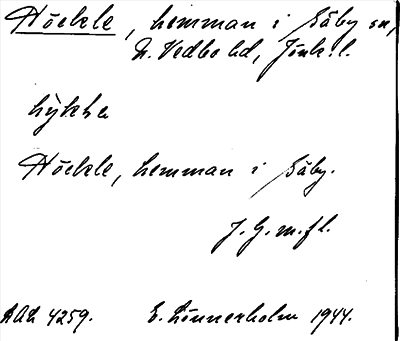 Höckle, hemman i Säby sn,
N. Vedbo hd, Jönk. l.
hỳkhe
Höckle, hemman i Säby.
J. G. m. fl.
AAL 4259. E. Linnerholm 1944.